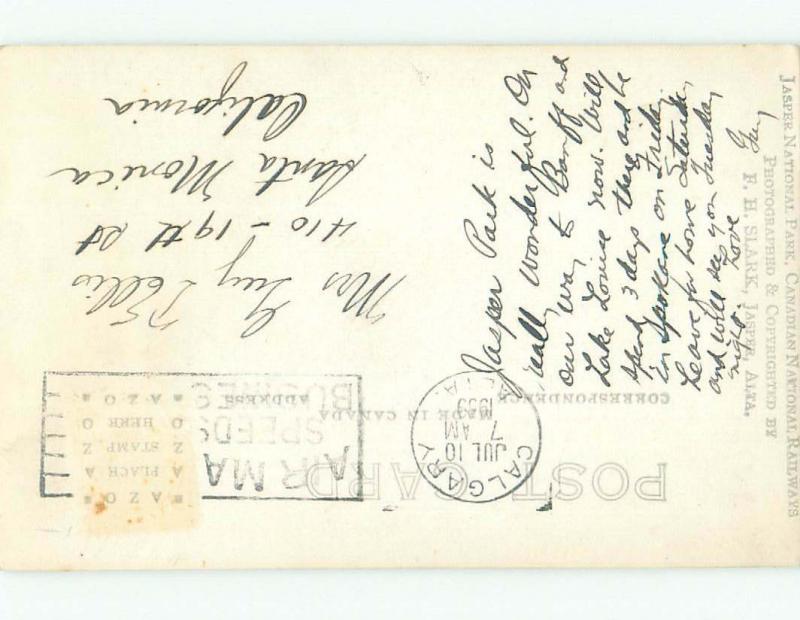 POST CARD
MADE IN CANADA
CORRESPONDENCE
ADDRESS
AZO
PLACE
STAMP
HERE
AZO
CALGARY
JUL 10
7 AM
1953
ALTA.
AIR MA
SPEEDS
BUSINES
Jasper Park is
really wonderful. On
our way to Banff and
Lake Louise now. Will
spend 3 days there and be
in Spokane on Friday.
Leave for home Saturday
and will see you Tuesday
night. Love
Guy
Mrs Guy T Ellis
410 - 19th St
Santa Monica
California
JASPER NATIONAL PARK, CANADIAN NATIONAL RAILWAYS
PHOTOGRAPHED & COPYRIGHTED BY
F. H. SLARK, JASPER, ALTA.